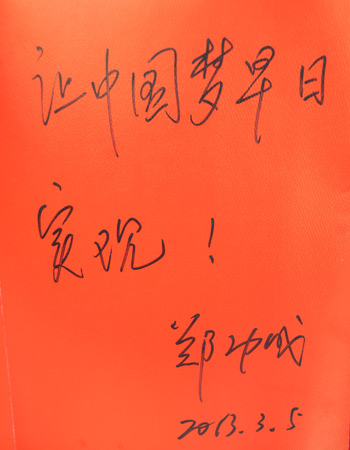 让中国梦早日
实现！
郑功成
2013.3.5